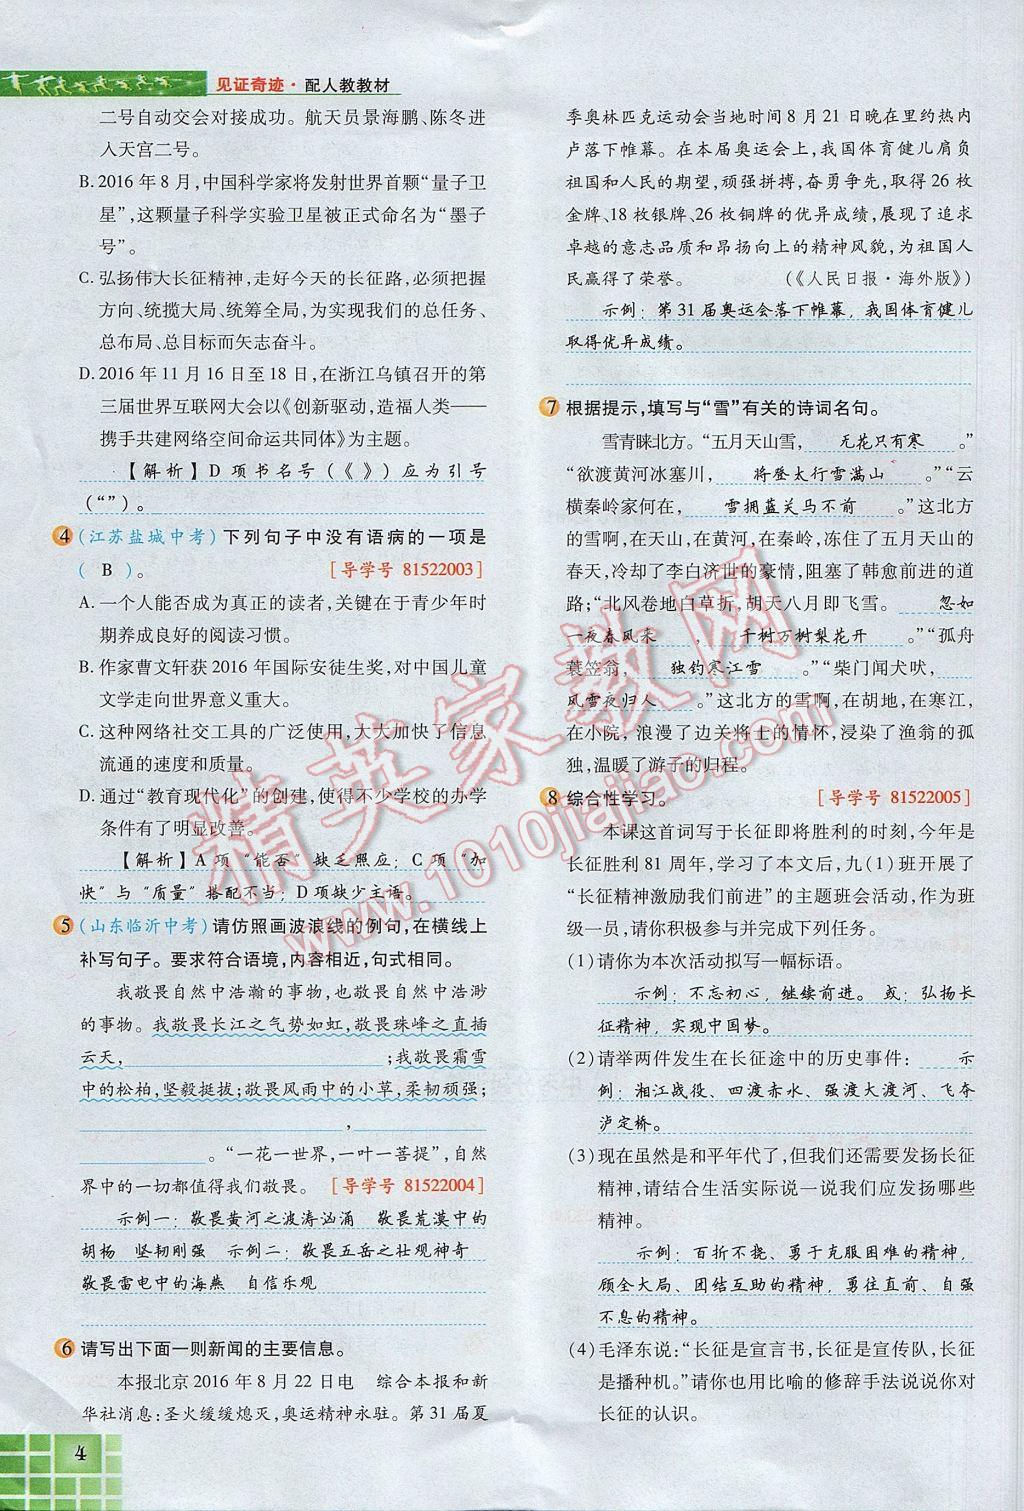 见证奇迹·配人教教材
二号自动交会对接成功。航天员景海鹏、陈冬进
入天宫二号。
B. 2016 年 8 月,中国科学家将发射世界首颗“量子卫
星”,这颗量子科学实验卫星被正式命名为“墨子
号”。
C. 弘扬伟大长征精神,走好今天的长征路,必须把握
方向、统揽大局、统筹全局,为实现我们的总任务、
总布局、总目标而矢志奋斗。
D. 2016 年 11 月 16 日至 18 日,在浙江乌镇召开的第
三届世界互联网大会以《创新驱动,造福人类——
携手共建网络空间命运共同体》为主题。
【解析】D 项书名号(《 》)应为引号
(“”)。
4 (江苏盐城中考)下列句子中没有语病的一项是
( B )。 [导学号 81522003]
A. 一个人能否成为真正的读者,关键在于青少年时
期养成良好的阅读习惯。
B. 作家曹文轩获 2016 年国际安徒生奖,对中国儿童
文学走向世界意义重大。
C. 这种网络社交工具的广泛使用,大大加快了信息
流通的速度和质量。
D. 通过“教育现代化”的创建,使得不少学校的办学
条件有了明显改善。
【解析】A 项“能否”缺乏照应;C 项“加
快”与“质量”搭配不当;D 项缺少主语。
5 (山东临沂中考)请仿照画波浪线的例句,在横线上
补写句子。要求符合语境,内容相近,句式相同。
我敬畏自然中浩瀚的事物,也敬畏自然中浩渺
的事物。我敬畏长江之气势如虹,敬畏珠峰之直插
云天,;我敬畏霜雪
中的松柏,坚毅挺拔;敬畏风雨中的小草,柔韧顽强;
,
。“一花一世界,一叶一菩提”,自然
界中的一切都值得我们敬畏。 [导学号 81522004]
示例一:敬畏黄河之波涛汹涌 敬畏荒漠中的
胡杨 坚韧刚强 示例二:敬畏五岳之壮观神奇
敬畏雷电中的海燕 自信乐观
6 请写出下面一则新闻的主要信息。
本报北京 2016 年 8 月 22 日电 综合本报和新
华社消息:圣火缓缓熄灭,奥运精神永驻。第 31 届夏
4
季奥林匹克运动会当地时间 8 月 21 日晚在里约热内
卢落下帷幕。在本届奥运会上,我国体育健儿肩负
祖国和人民的期望,顽强拼搏,奋勇争先,取得 26 枚
金牌、18 枚银牌、26 枚铜牌的优异成绩,展现了追求
卓越的意志品质和昂扬向上的精神风貌,为祖国人
民赢得了荣誉。 (《人民日报·海外版》)
示例:第 31 届奥运会落下帷幕,我国体育健儿
取得优异成绩。
7 根据提示,填写与“雪”有关的诗词名句。
雪青睐北方。“五月天山雪, 无花只有寒 。”
“欲渡黄河冰塞川, 将登太行雪满山 。”“云
横秦岭家何在, 雪拥蓝关马不前 。”这北方
的雪啊,在天山,在黄河,在秦岭,冻住了五月天山的
春天,冷却了李白济世的豪情,阻塞了韩愈前进的道
路;“北风卷地白草折,胡天八月即飞雪。 忽如
一夜春风来 , 千树万树梨花开 。”“孤舟
蓑笠翁, 独钓寒江雪 。”“柴门闻犬吠,
风雪夜归人 。”这北方的雪啊,在胡地,在寒江,
在小院,浪漫了边关将士的情怀,浸染了渔翁的孤
独,温暖了游子的归程。
8 综合性学习。 [导学号 81522005]
本课这首词写于长征即将胜利的时刻,今年是
长征胜利 81 周年,学习了本文后,九(1)班开展了
“长征精神激励我们前进”的主题班会活动,作为班
级一员,请你积极参与并完成下列任务。
(1)请你为本次活动拟写一幅标语。
示例:不忘初心,继续前进。 或:弘扬长
征精神,实现中国梦。
(2)请举两件发生在长征途中的历史事件: 示
例:湘江战役、四渡赤水、强渡大渡河、飞夺
泸定桥。
(3)现在虽然是和平年代了,但我们还需要发扬长征
精神,请结合生活实际说一说我们应发扬哪些
精神。
示例:百折不挠、勇于克服困难的精神,
顾全大局、团结互助的精神,勇往直前、自强
不息的精神。
(4)毛泽东说:“长征是宣言书,长征是宣传队,长征
是播种机。”请你也用比喻的修辞手法说说你对
长征的认识。
精英家教网
www.1010jiajiao.com